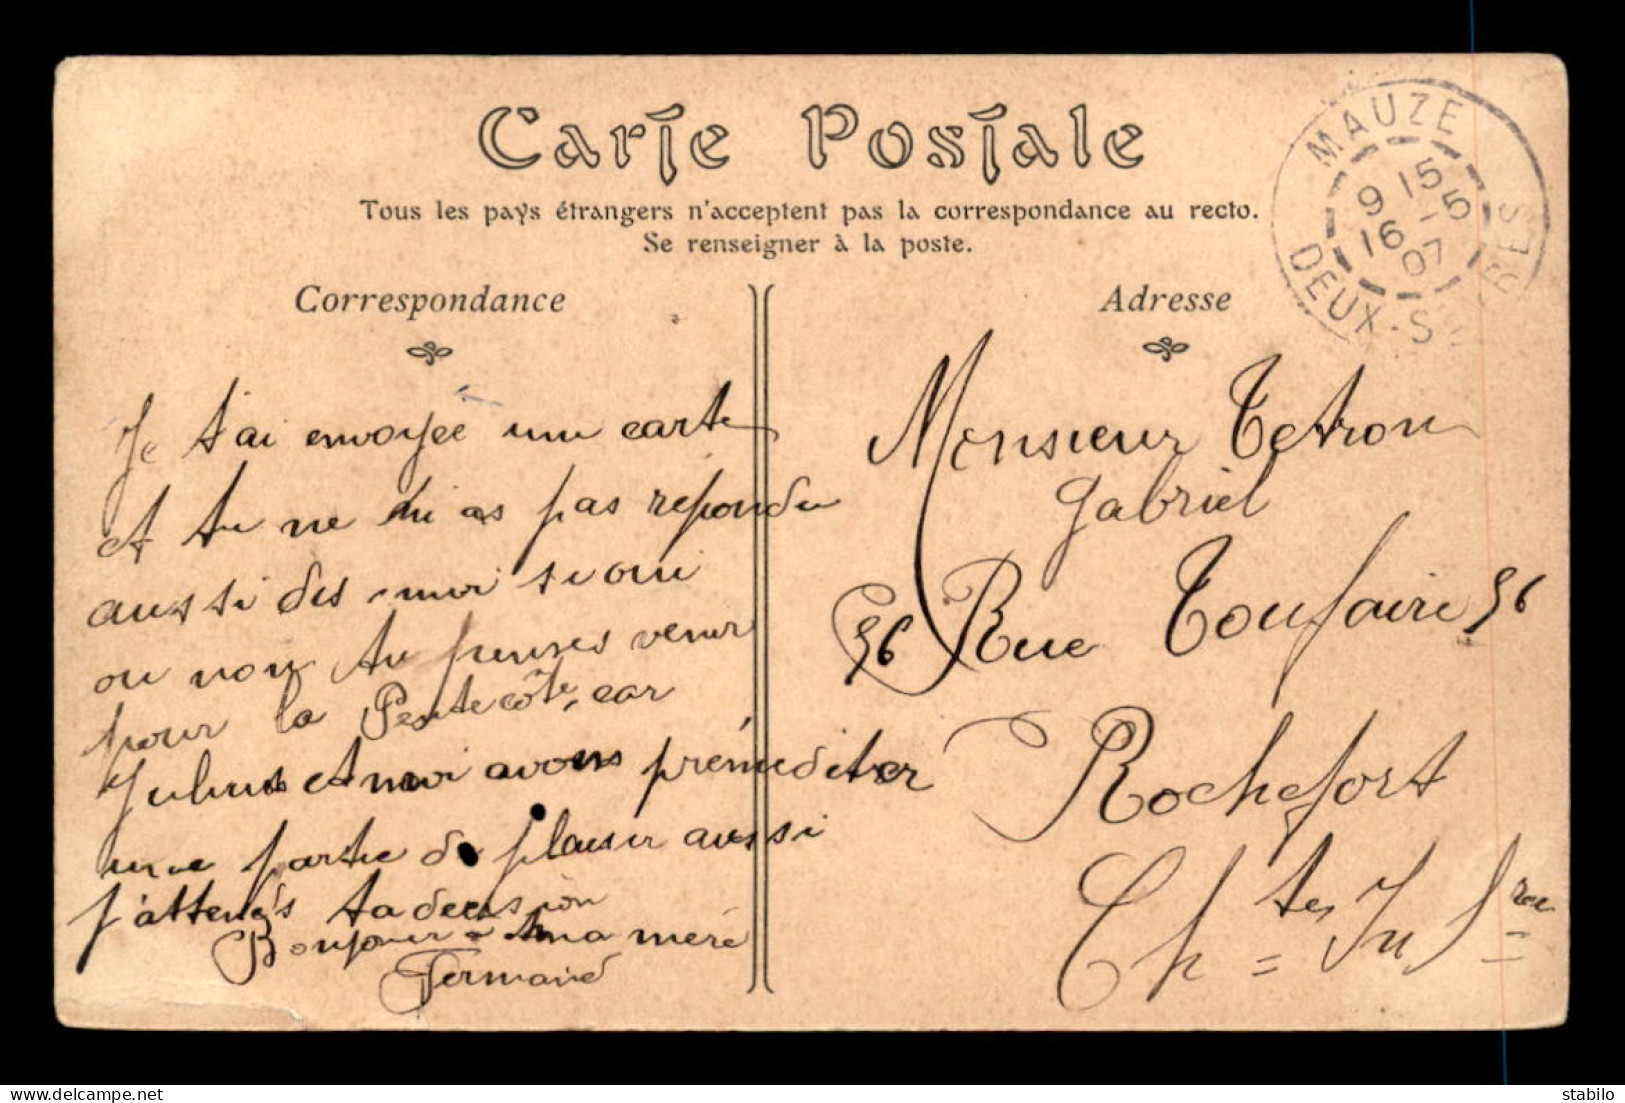 Carte Postale
Tous les pays étrangers n'acceptent pas la correspondance au recto.
Se renseigner à la poste.
MAUZE
9 15
16 -5
07
DEUX-S RES
Correspondance
Je t'ai envoyée une carte
et tu ne m'as pas répondu
aussi dis moi si oui
ou non tu penses venir
pour la Pentecôte, car
et moi avons préméditer
une partie de plaisir aussi
j'attends ta decision
Bonjour a ma mère
Adresse
Monsieur Tetron
Gabriel
56 Rue Toufaire 56
Rochefort
Ch = tes Inf re
delcampe.net
stabilo